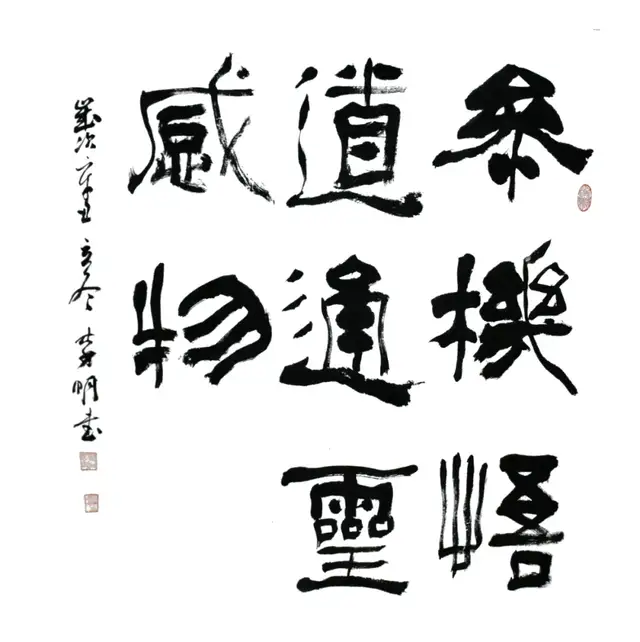 參機悟
道通靈
感物
歲次辛丑立冬 明書